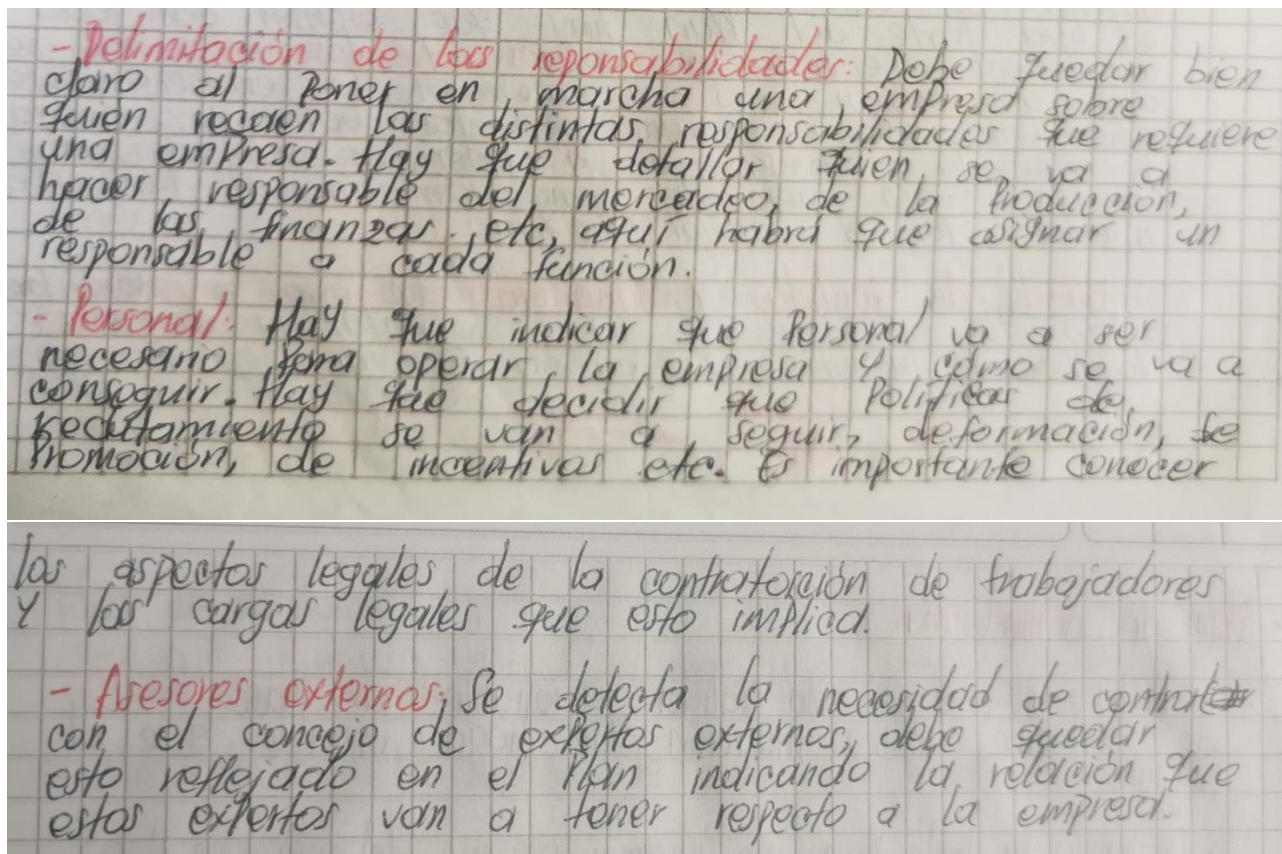 - Delimitación de las reponsabilidades: Debe quedar bien
claro al Poner en marcha una empresa sobre
quien recaen las distintas responsabilidades que requiere
una empresa. Hay que detallar quien se va a
hacer responsable del mercadeo, de la Producción,
de las finanzas, etc, aquí habrá que asignar un
responsable a cada función.
- Personal: Hay que indicar que Personal va a ser
necesario para operar la empresa y como se va a
conseguir. Hay que decidir que Políticas de
reclutamiento se van a seguir, deformación, de
Promoción, de incentivas etc. Es importante conocer
los aspectos legales de la contratación de trabajadores
Y las cargas legales que esto implica.
- Asesores externos: Se detecta la necesidad de contrat
con el concejo de expertos externos, debe quedar
esto reflejado en el Plan indicando la relación que
estos expertos van a tener respecto a la empresa.